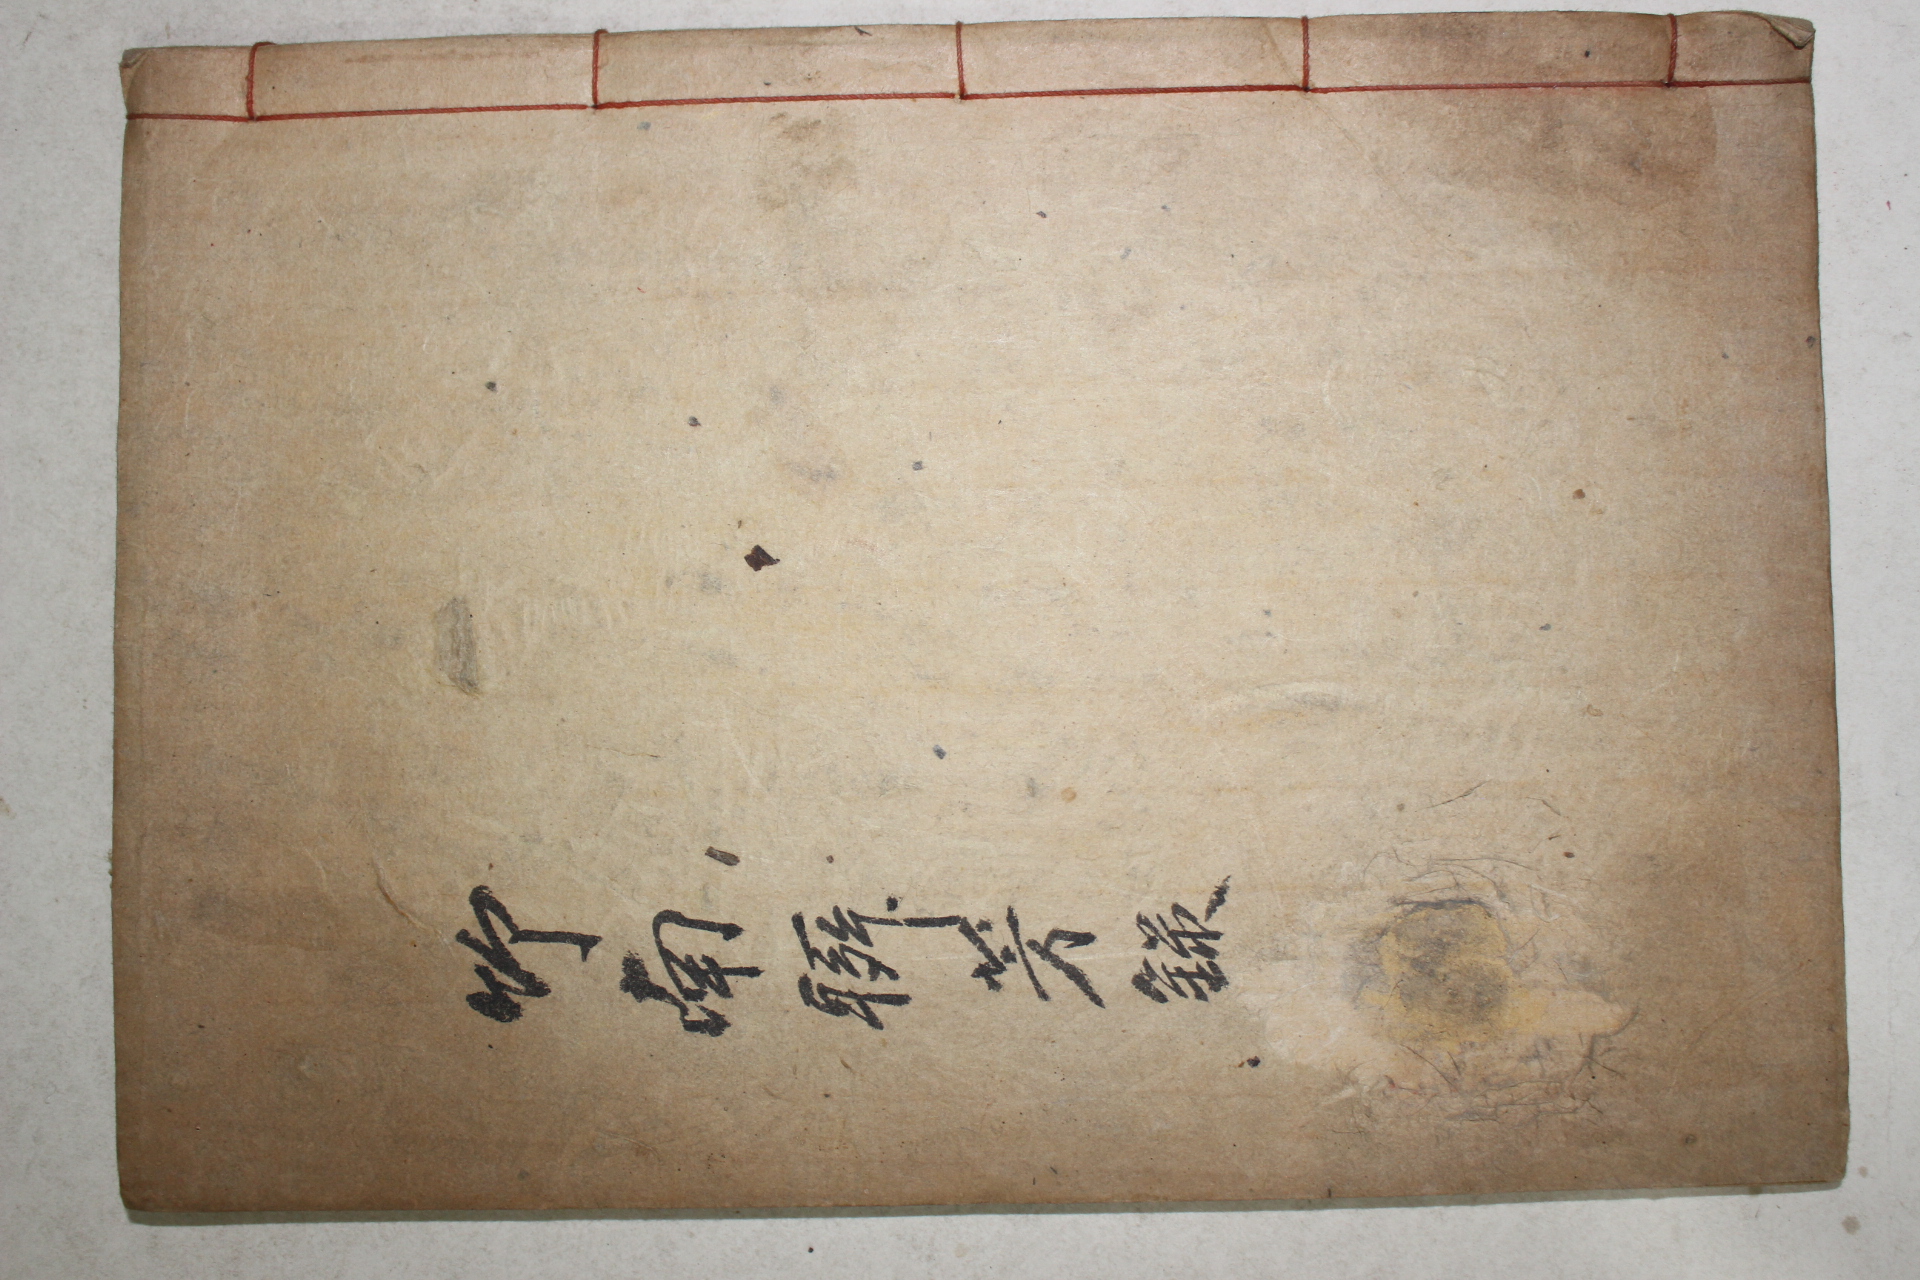 竹南聯芳錄